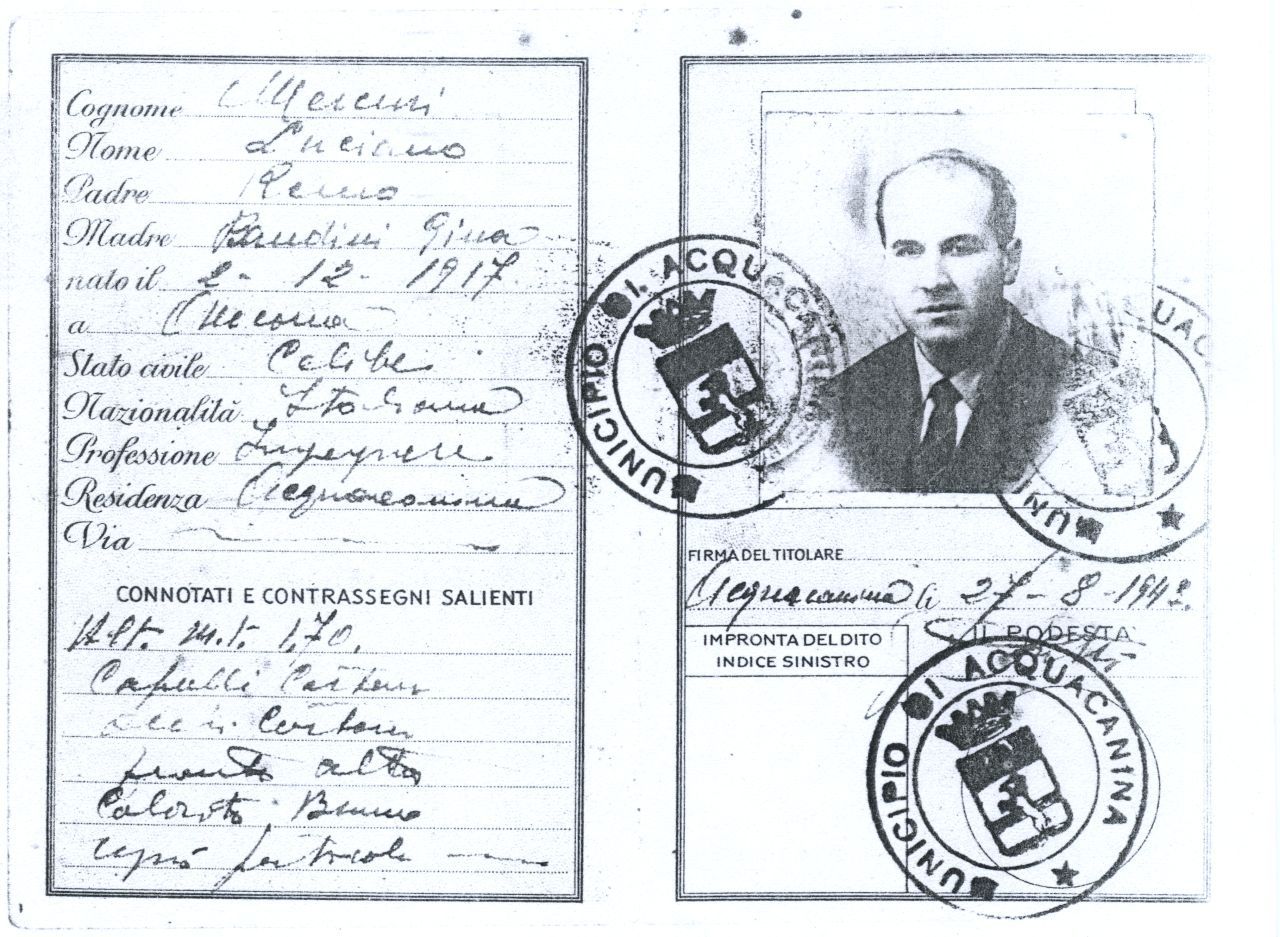 Cognome Mercuri
Nome Luciano
Padre Remo
Madre Bandini Gina
nato il 2 - 12 - 1917
a Ancona
Stato civile Celibe
Nazionalità Italiana
Professione Ingegnere
Residenza Acquacanina
Via
CONNOTATI E CONTRASSEGNI SALIENTI
Alt. m.t. 1,70.
Capelli Castani
occhi Castani
fronte alta
Colorito Bruno
segni particolari
MUNICIPIO DI ACQUACANINA
MUNICIPIO DI ACQUACANINA
FIRMA DEL TITOLARE
Acquacanina li 27 - 8 - 194
IMPRONTA DEL DITO
INDICE SINISTRO
IL PODESTA
MUNICIPIO DI ACQUACANINA